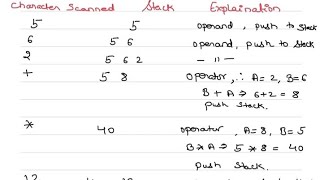 Character Scanned Stack Explaination
5 5 operand, push to stack
6 5 6 operand, push to stack
2 5 6 2 — 〃 —
+ 5 8 operator, ∴ A=2, B=6
B + A ⇒ 6+2 = 8
Push stack.
* 40 operator, A=8, B=5
B * A ⇒ 5 * 8 = 40
Push stack.
12